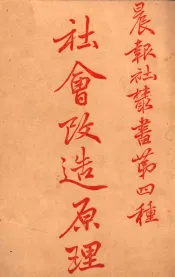 晨報社叢書第四種
社會改造原理